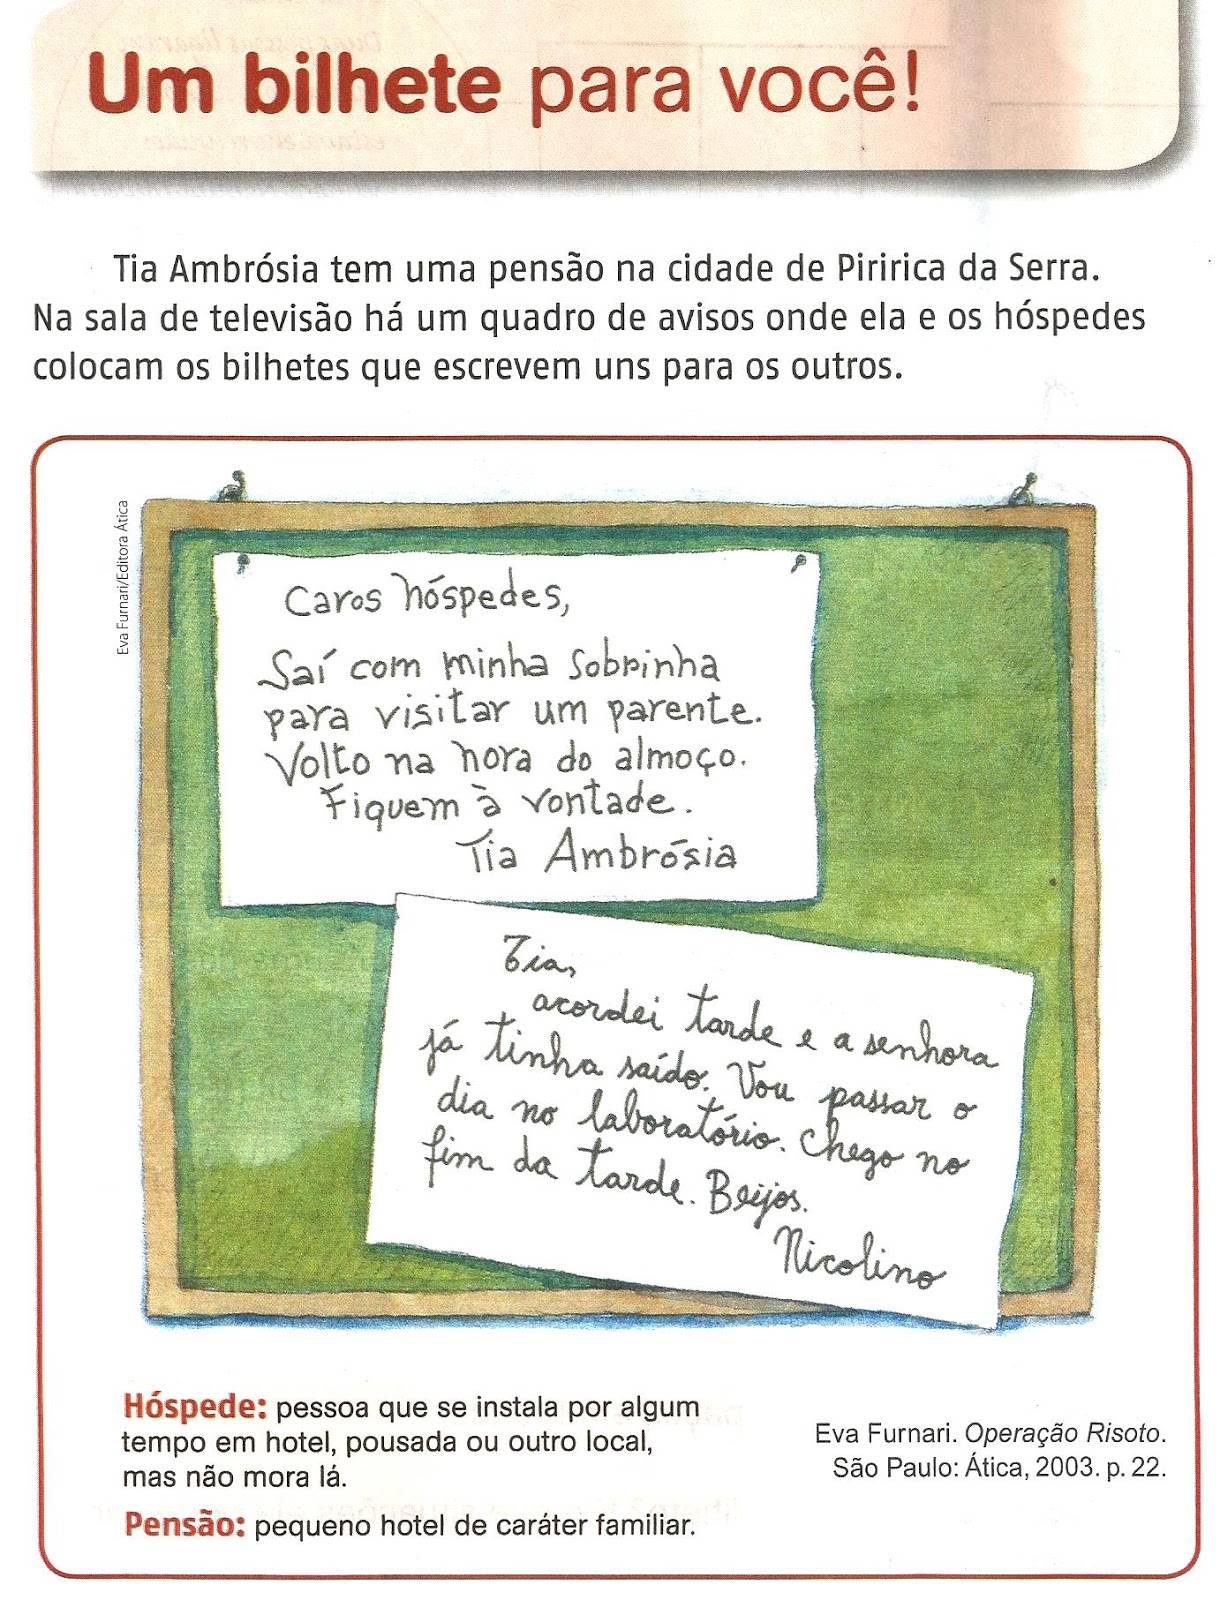 Um bilhete para você!
Tia Ambrósia tem uma pensão na cidade de Piririca da Serra.
Na sala de televisão há um quadro de avisos onde ela e os hóspedes
colocam os bilhetes que escrevem uns para os outros.
Eva Furnari/Editora Ática
Caros hóspedes,
Saí com minha sobrinha
para visitar um parente.
Volto na hora do almoço.
Fiquem à vontade.
Tia Ambrósia
Tia,
acordei tarde e a senhora
já tinha saído. Vou passar o
dia no laboratório. Chego no
fim da tarde. Beijos.
Nicolino
Hóspede: pessoa que se instala por algum
tempo em hotel, pousada ou outro local,
mas não mora lá.
Pensão: pequeno hotel de caráter familiar.
Eva Furnari. Operação Risoto.
São Paulo: Ática, 2003. p. 22.